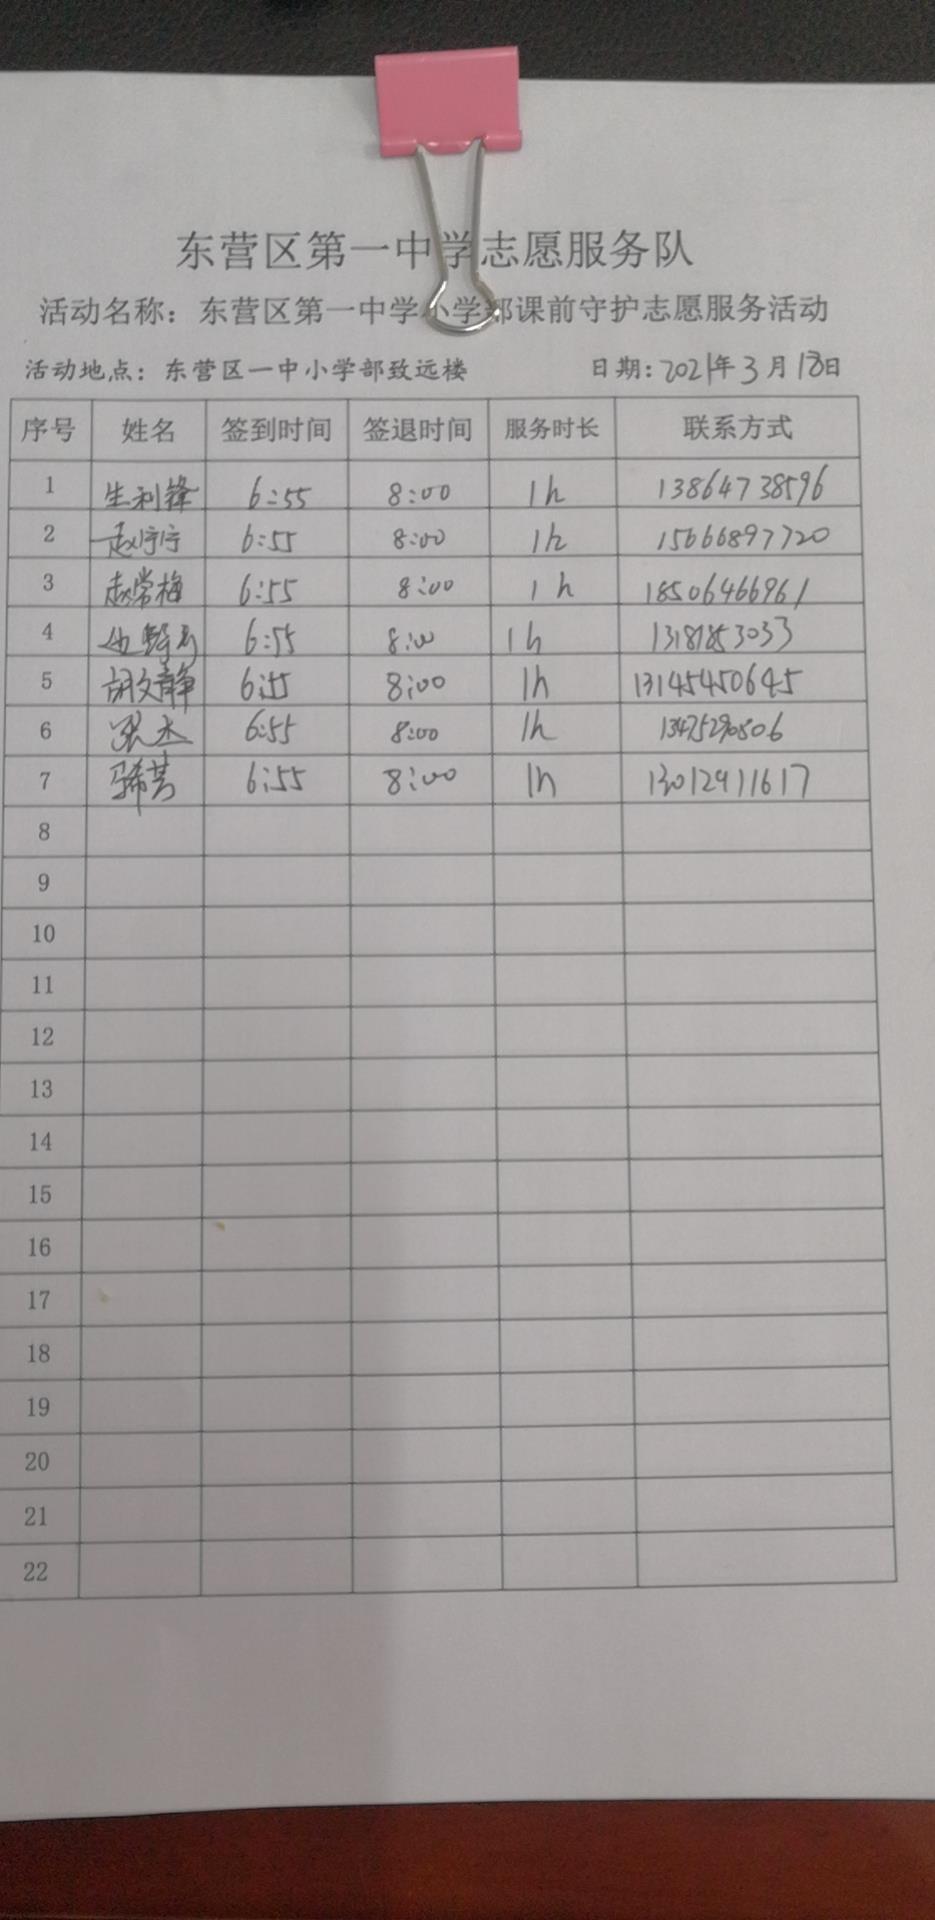 东营区第一中学志愿服务队
活动名称：东营区第一中学小学部课前守护志愿服务活动
活动地点：东营区一中小学部致远楼 日期：2021年3月18日
序号 姓名 签到时间 签退时间 服务时长 联系方式
1 生利锋 6:55 8:00 1h 13864738596
2 赵宁宁 6:55 8:00 1h 15666897720
3 赵常梅 6:55 8:00 1h 18506466961
4 6:55 8:00 1h 13181853033
5 胡文静 6:55 8:00 1h 13145450645
6 张杰 6:55 8:00 1h 13475290806
7 6:55 8:00 1h 13012911617
8
9
10
11
12
13
14
15
16
17
18
19
20
21
22